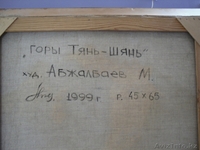 „Горы Тянь-Шянь"
худ. Абжалбаев М.
1999 г р. 45×65